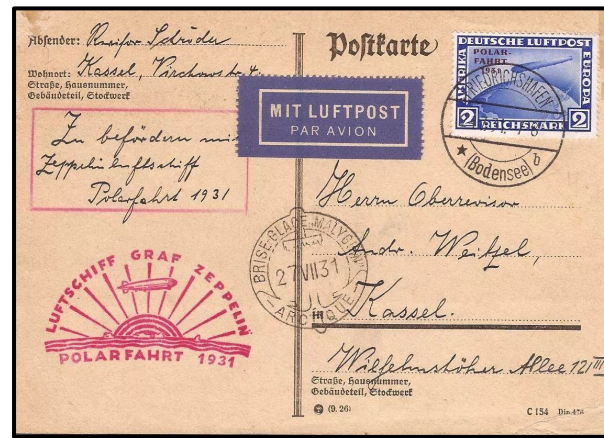 Absender: Revisor Schröder
Wohnort: Kassel, Virchowstr. 4.
Straße, Hausnummer,
Gebäudeteil, Stockwerk
Zu befördern mit
Zeppelinluftschiff
Polarfahrt 1931
LUFTSCHIFF GRAF ZEPPELIN
POLARFAHRT 1931
Postkarte
MIT LUFTPOST
PAR AVION
DEUTSCHE LUFTPOST
AMERIKA
EUROPA
POLAR-
FAHRT
1931
2 REICHSMARK 2
FRIEDRICHSHAFEN
(Bodensee) b
BRISE-GLACE MALYGUIN
27 VII 31
ARCTIQUE
Herrn Oberrevisor
Andr. Weitzel,
Kassel.
Wilhelmshöher Allee 121 III
Straße, Hausnummer,
Gebäudeteil, Stockwerk
(9. 26)
C 154 Din 476